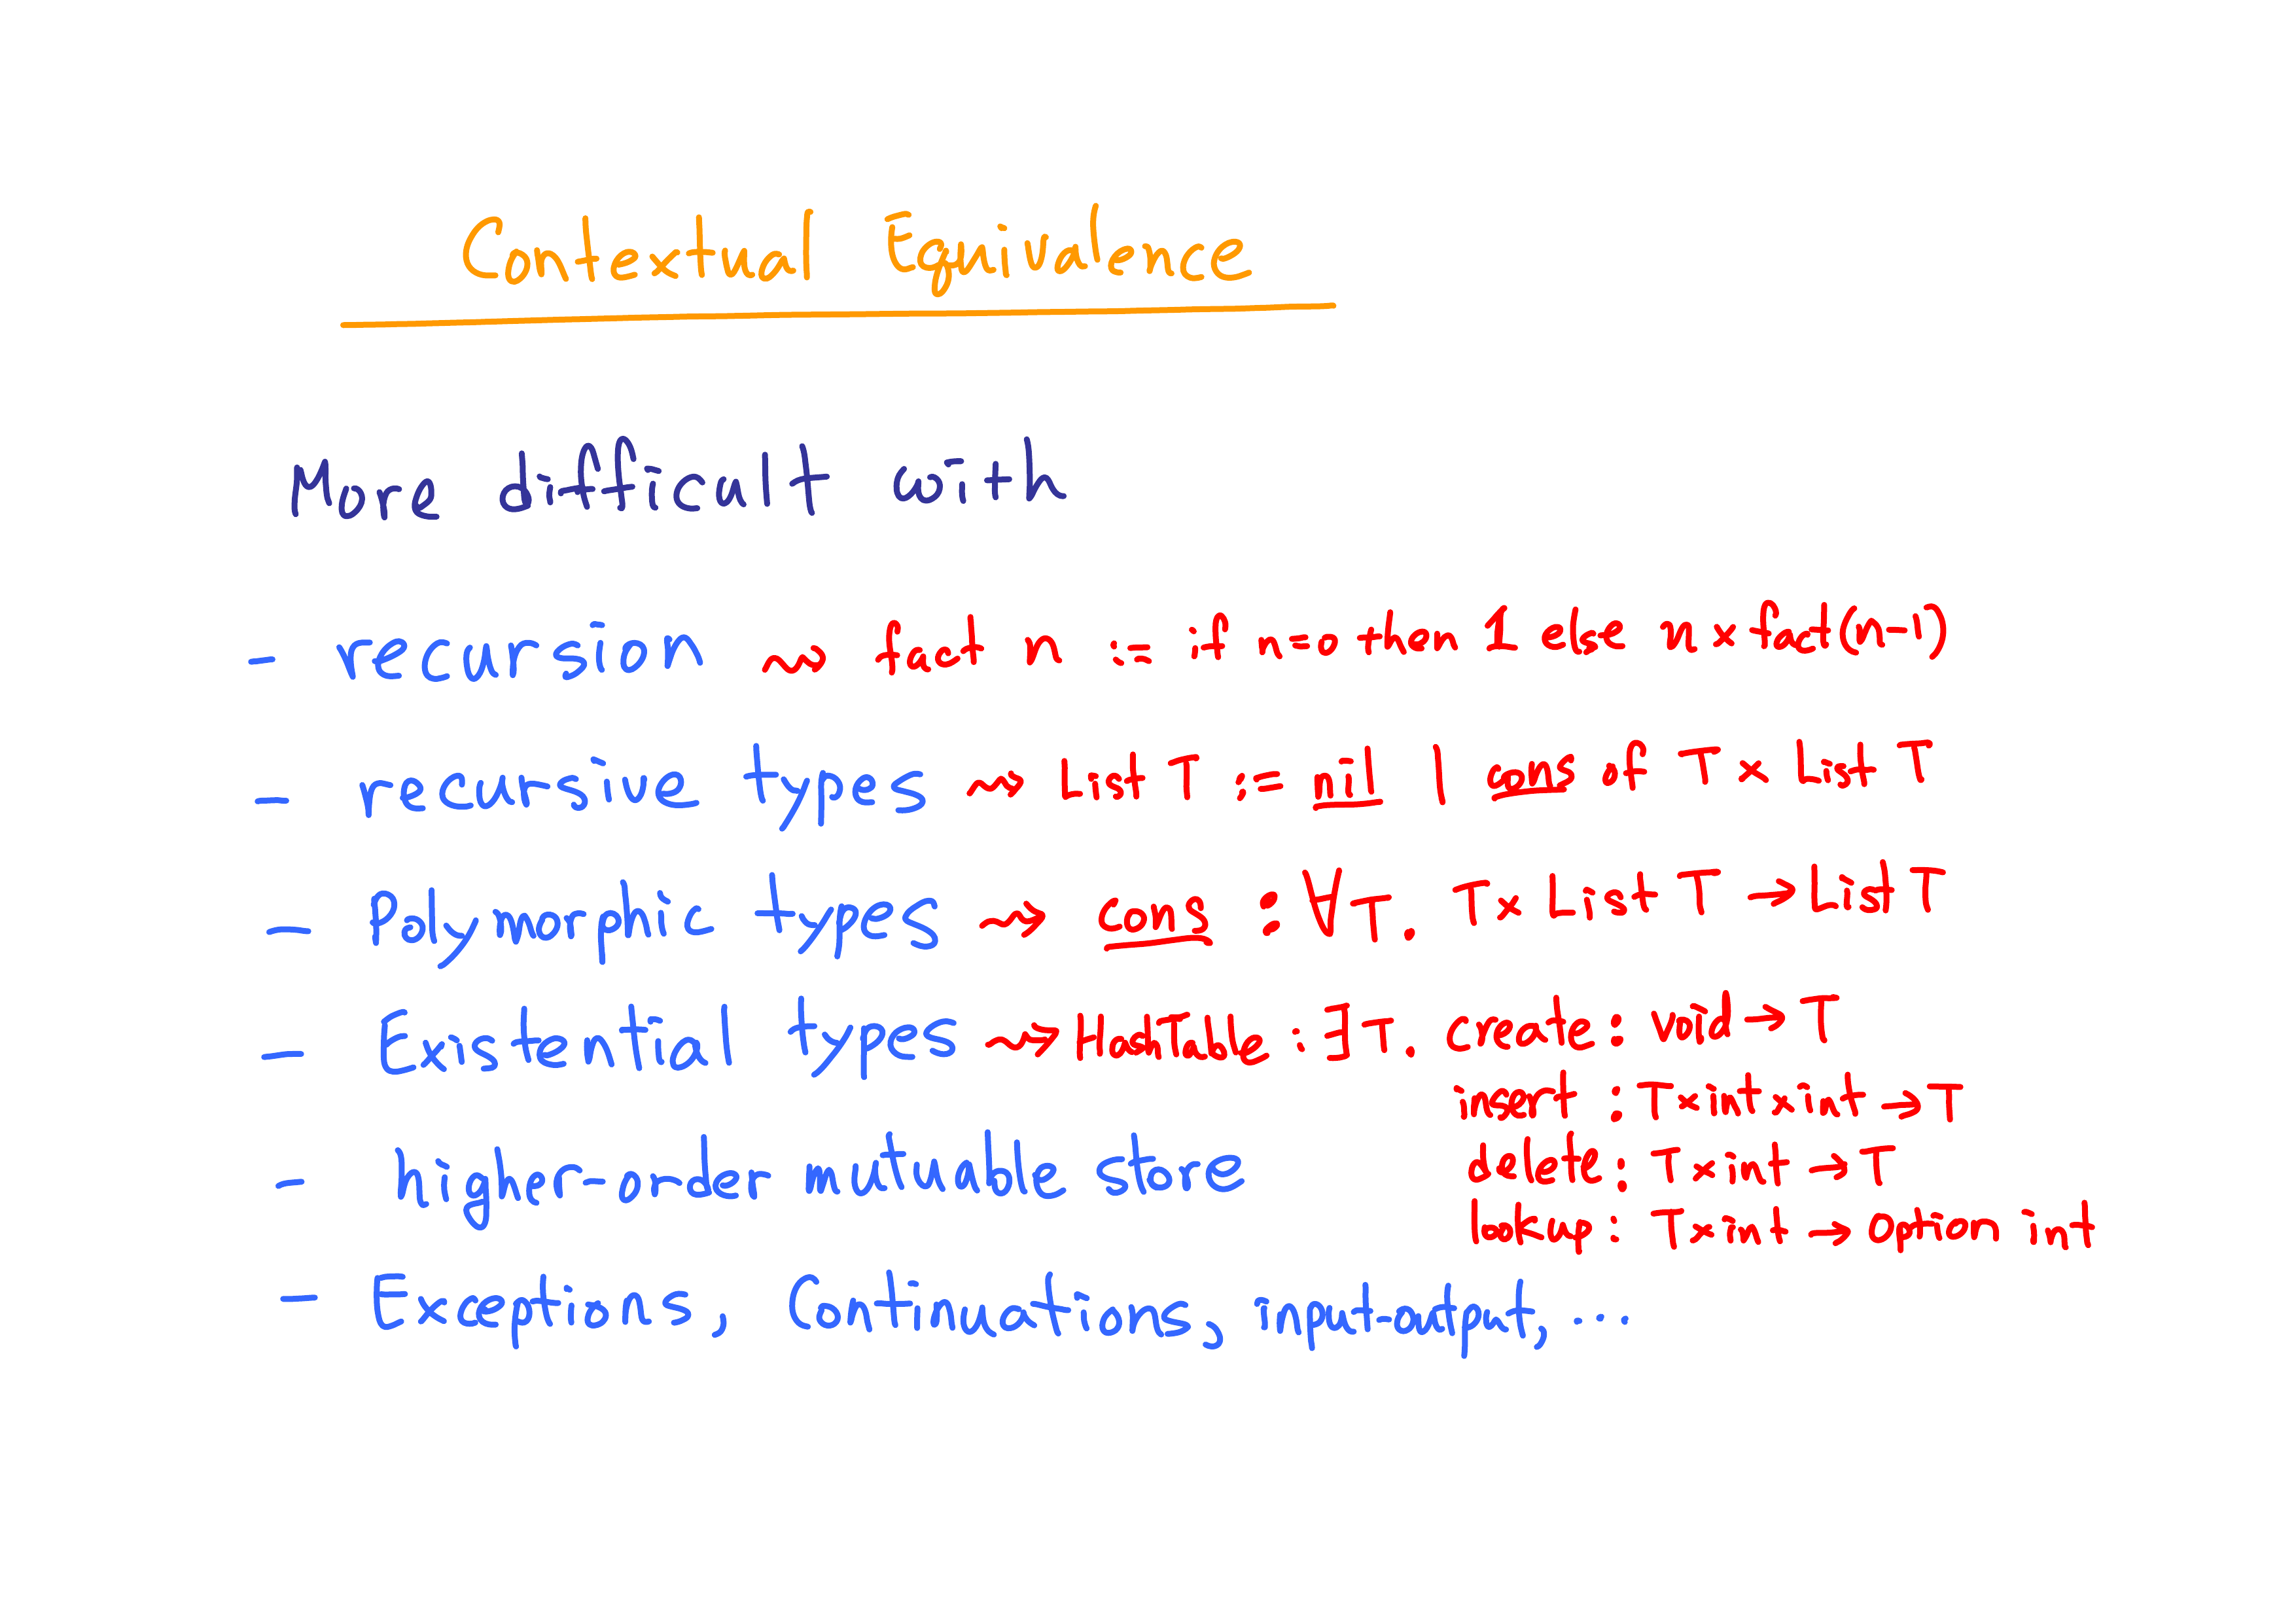 Contextual Equivalence
More difficult with
- recursion ⇝ fact n := if n=0 then 1 else n × fact(n-1)
- recursive types ⇝ List T := nil | cons of T × List T
- Polymorphic types ⇝ cons : ∀T. T × List T → List T
- Existential types ⇝ HashTable : ∃T. create : void → T
insert : T × int × int → T
delete : T × int → T
- higher-order mutuable store
lookup : T × int → option int
- Exceptions, Continuations, input-output, ...